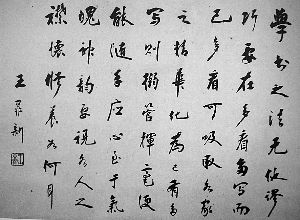 學書之法无他謬
巧要在多看多写而
已多看可吸取各家
之精華化為己有多
写則搦管揮毫便
能随手应心至于氣
魄神韵要視各人之
襟懷修養如何耳
王